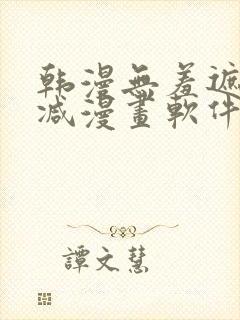 韩漫無羞遮
减漫畫軟件
譚文慧